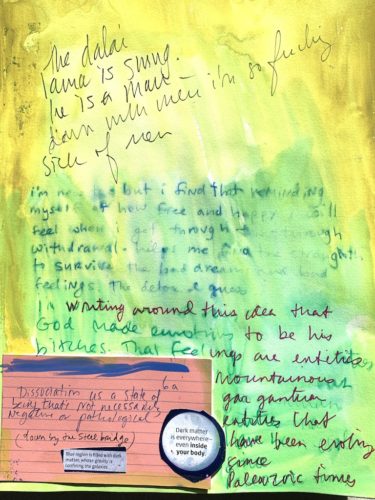 The dalai
lama is smug.
he is a man -
down with men - i'm so fucking
sick of men
but i find that reminding
myself of how free and happy i will
feel when i get through
withdrawal - helps me find the strength
to survive the bad dreams and bad
feelings. The detox i guess
I'm writing around this idea that
God made emotions to be his
bitches. That feelings are entities,
mountainous
gargantuan
entities that
have been evolving
since
Paleozoic times
6a
Dissociation is a state of
being that's not necessarily
negative or pathological
(down by the steel bridge)
Blue region is filled with dark
matter, whose gravity is
confining the galaxies
Dark matter
is everywhere–
even inside
your body.